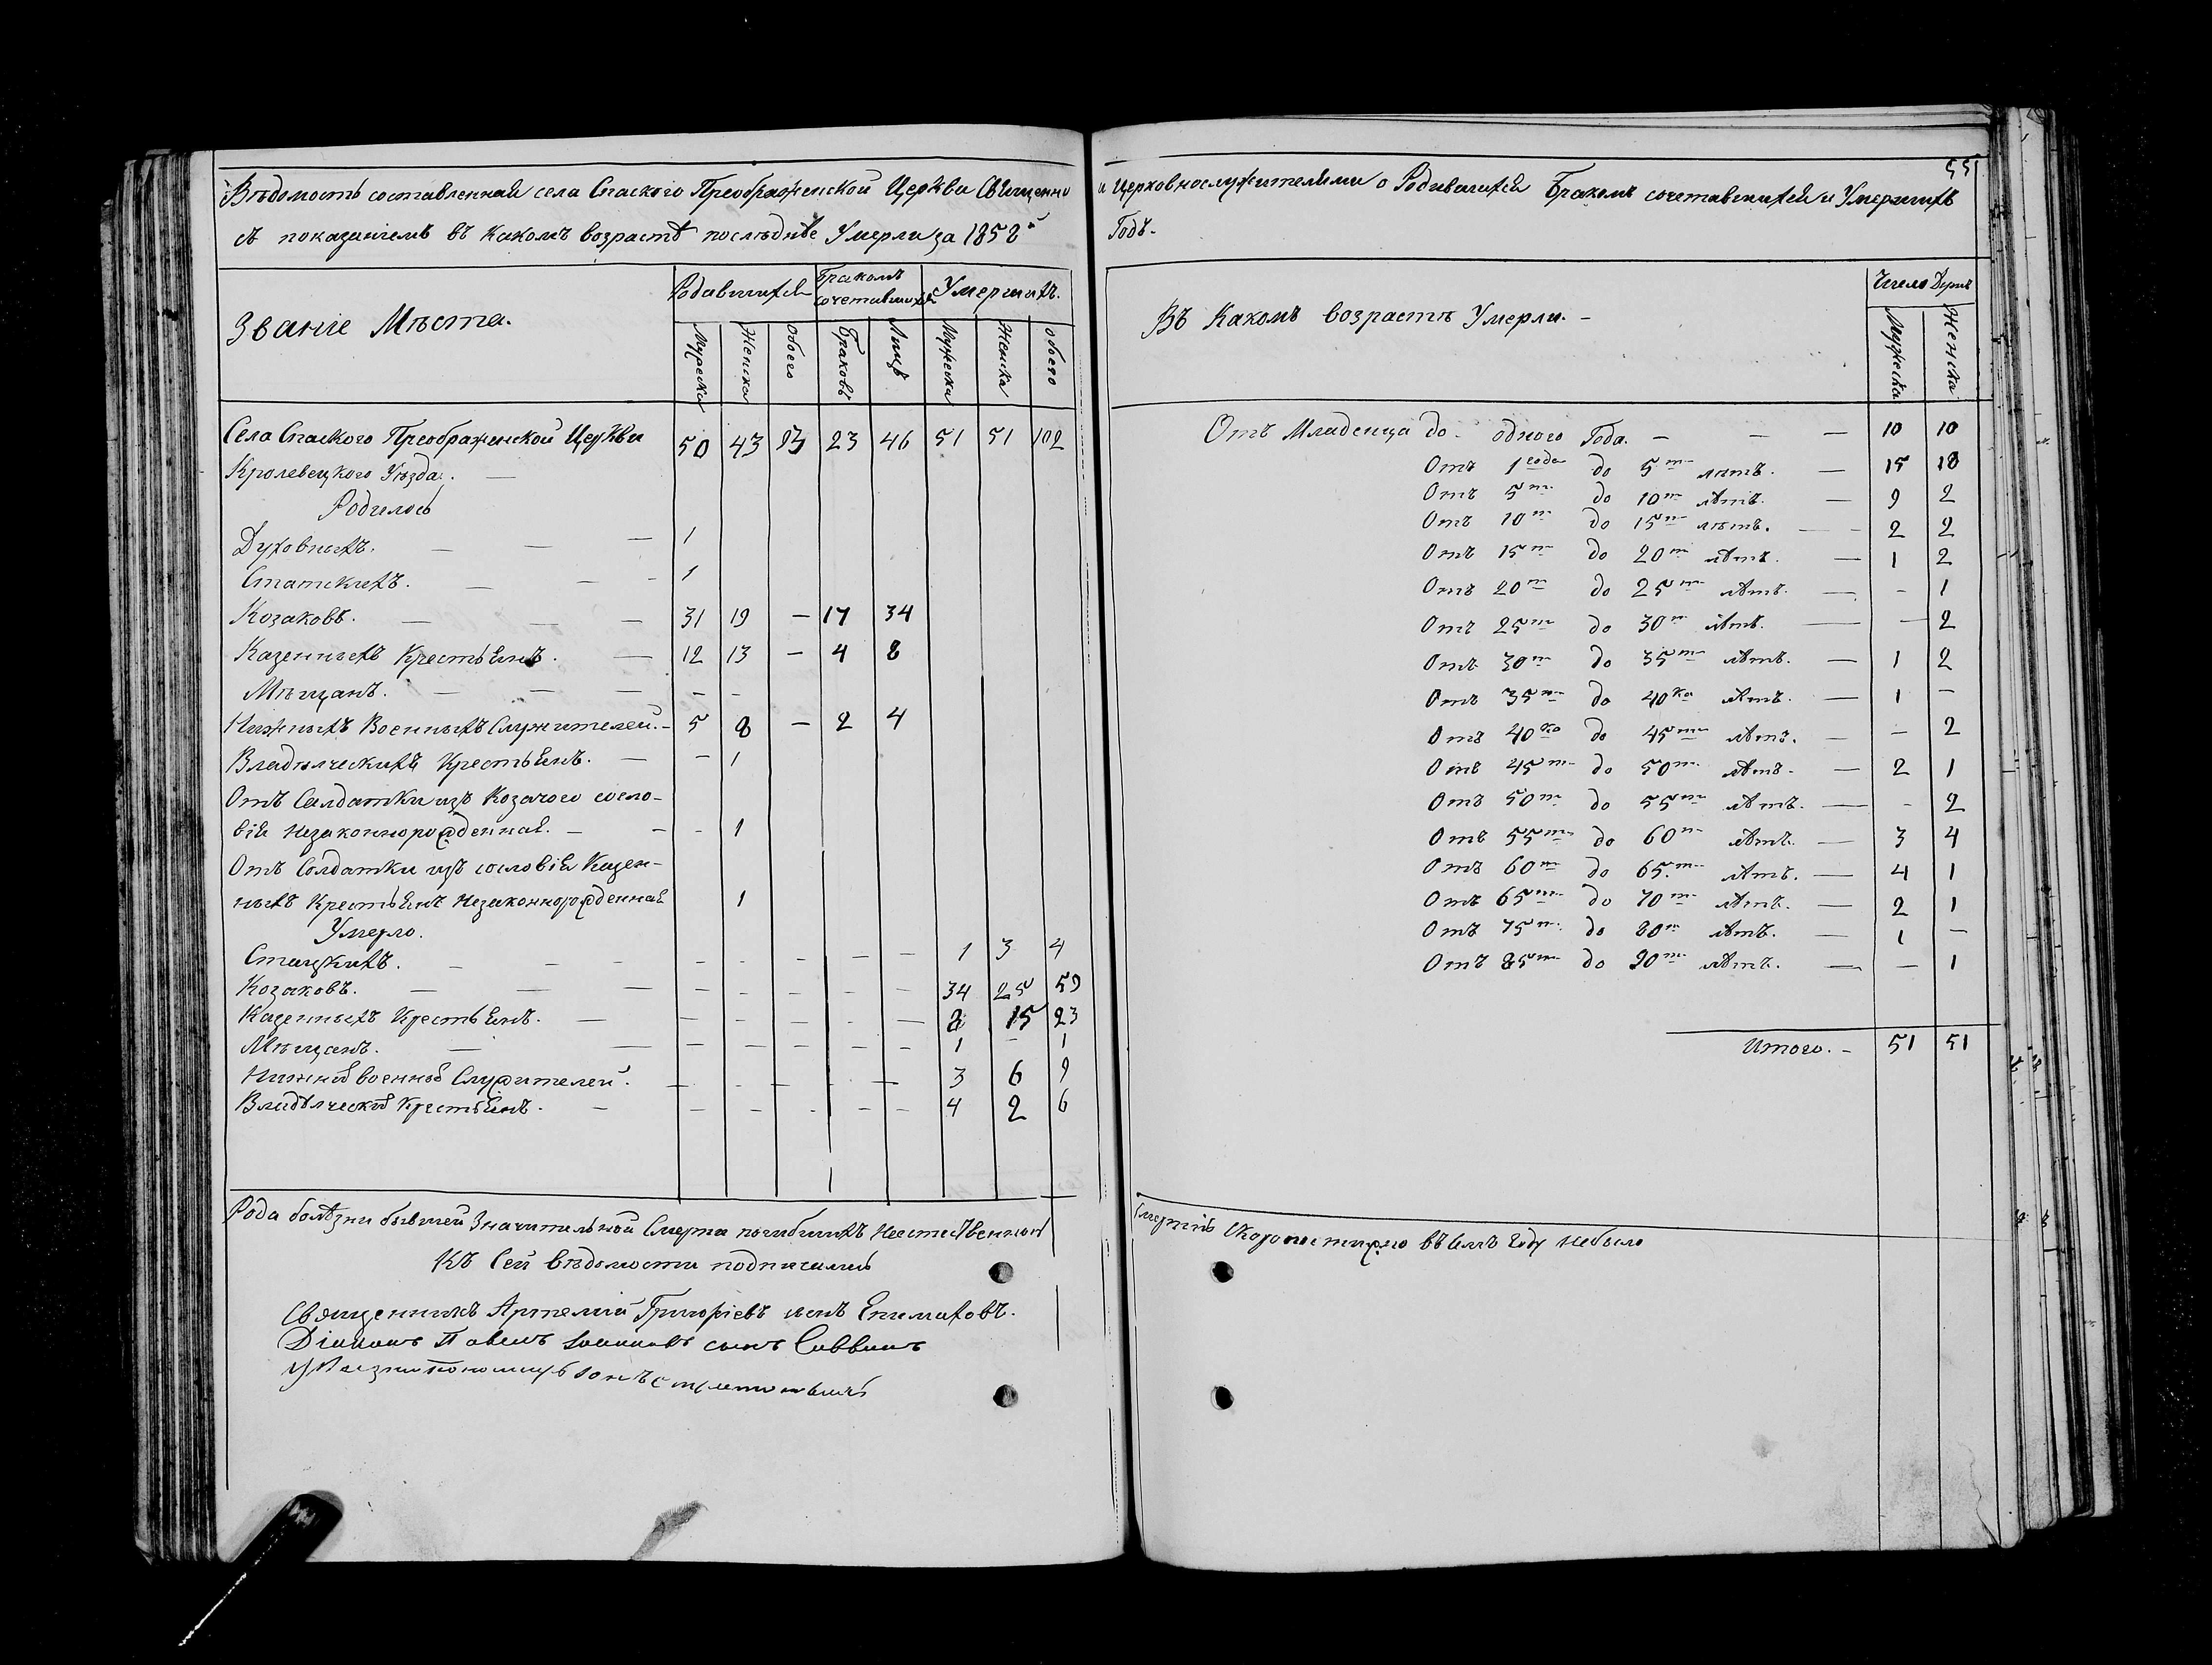 Вѣдомость составленная села Спаского Преображенской Церкви Священно
съ показаніемъ въ какомъ возрастѣ послѣдніе Умерли за 1858й
Званіе Мѣста.
Родившихся
Бракомъ сочетавшихся
Умершихъ.
Мужеска
Женска
Обоего
Браковъ
Лицъ
Мужеска
Женска
обоего
Села Спаского Преображенской Церкви 50 43 93 23 46 51 51 102
Кролевецкого Уѣзда. —
Родилось
Духовныхъ. — — — 1
Статскихъ. — — — 1
Козаковъ. — — — 31 19 — 17 34
Казенныхъ Крестьянъ. — 12 13 — 4 8
Мѣщанъ. — — — — —
Нижныхъ Военныхъ Служителей. — 5 8 — 2 4
Владѣлческихъ Крестьянъ. — — 1
Отъ Салдатки изъ Козачого сосло-
вія Незаконнорожденная. — — — 1
Отъ Солдатки изъ сословія Казен-
ныхъ Крестьянъ Незаконнорожденная 1
Умерло.
Стацкихъ. — — — — — — — — 1 3 4
Козаковъ. — — — — — — — — 34 25 59
Казенныхъ Крестьянъ. — — — — — — 8 15 23
Мѣщанъ. — — — — — — — 1 — 1
Нижнихъ военныхъ Служителей. — — — — — 3 6 9
Владѣлческихъ Крестьянъ. — — — — — — 4 2 6
Рода болѣзни бывшей Значительной Смерти погибшихъ Неестественной
Къ Сей вѣдомости подписались
Священникъ Артемій Григоріевъ сынъ Епиматовъ.
Діаконъ Павелъ Іоанновъ сынъ Саввинъ
551
и Церковнослужителями о Родившихся Бракомъ сочетавшихся и Умершихъ
Годъ.
Въ Какомъ возрастѣ Умерли. —
Число Душъ
Мужеска
Женска
Отъ Младенца до одного Года. — — — 10 10
Отъ 1 года до 5ти лѣтъ. — 15 18
Отъ 5ти до 10ти лѣтъ. — 9 2
Отъ 10ти до 15ти лѣтъ. — 2 2
Отъ 15ти до 20ти лѣтъ. — 1 2
Отъ 20ти до 25ти лѣтъ. — — 1
Отъ 25ти до 30ти лѣтъ. — — 2
Отъ 30ти до 35ти лѣтъ. — 1 2
Отъ 35ти до 40ка лѣтъ. — 1 —
Отъ 40ка до 45ти лѣтъ. — — 2
Отъ 45ти до 50ти лѣтъ. — 2 1
Отъ 50ти до 55ти лѣтъ. — — 2
Отъ 55ти до 60ти лѣтъ. — 3 4
Отъ 60ти до 65ти лѣтъ. — 4 1
Отъ 65ти до 70ти лѣтъ. — 2 1
Отъ 75ти до 80ти лѣтъ. — 1 —
Отъ 85ти до 90ти лѣтъ. — — 1
Итого. — 51 51
Смертію Скоропостижно въ семъ Году небыло